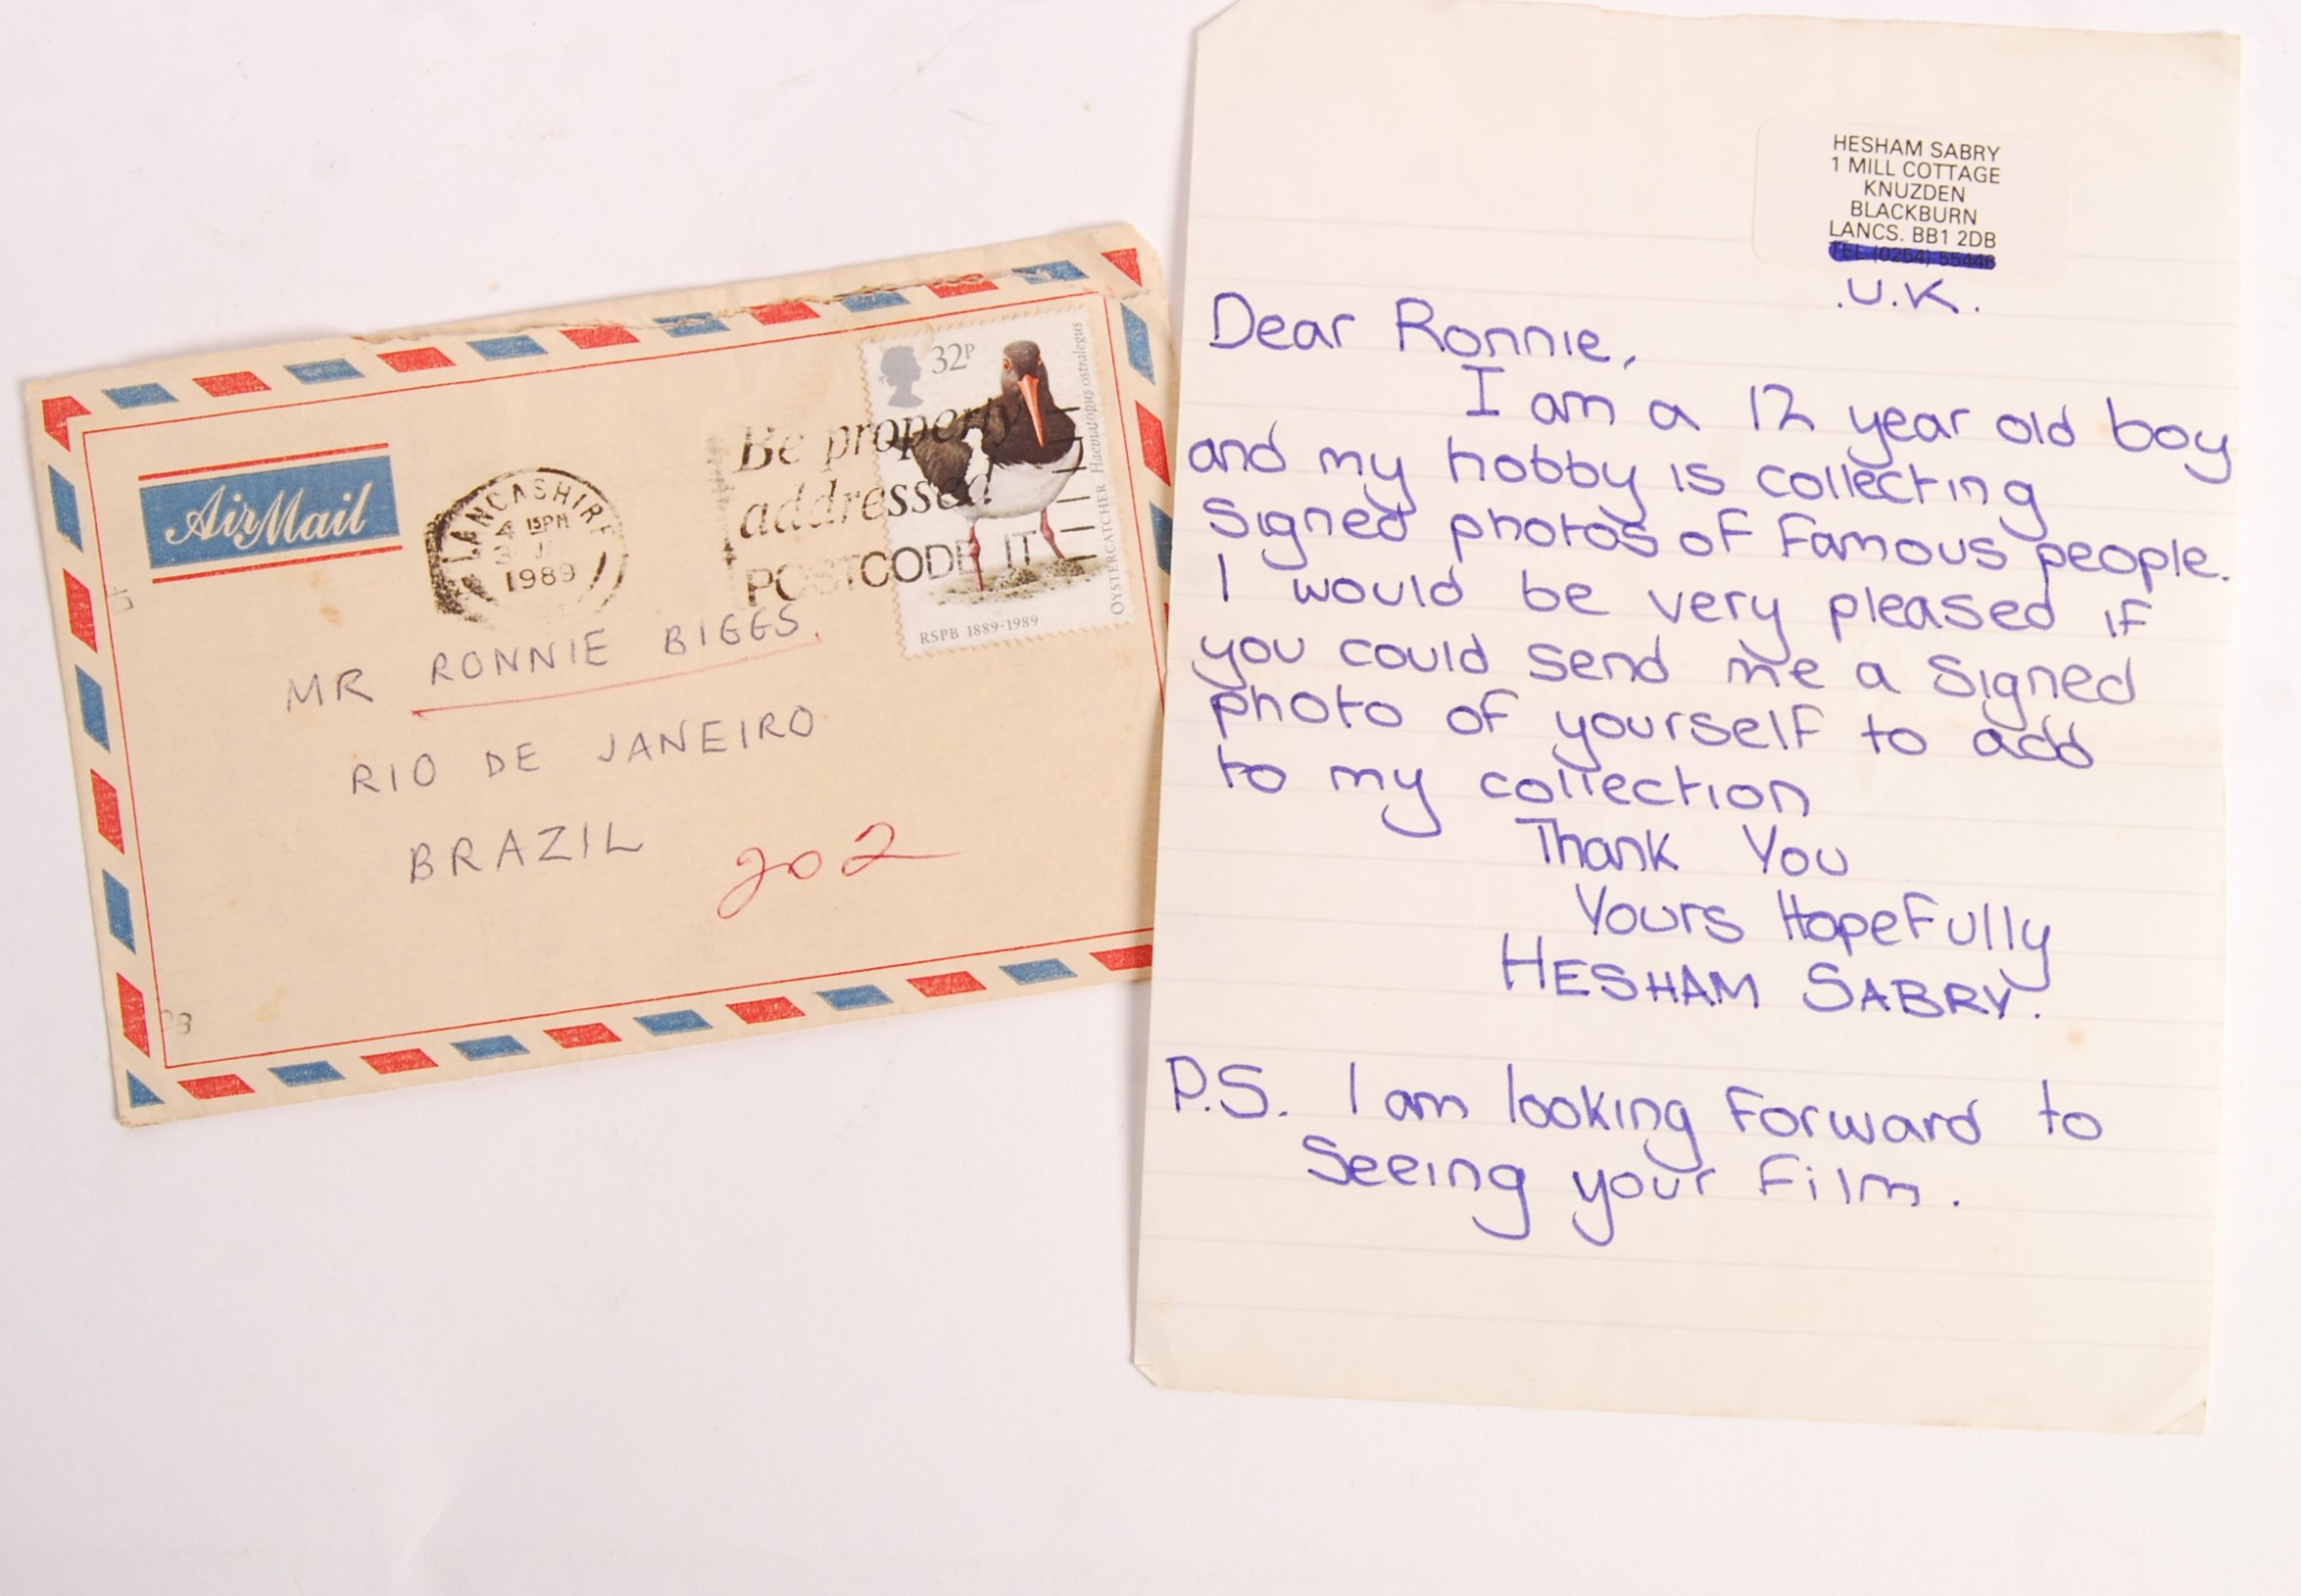 AirMail
LANCASHIRE
4 15PM
1989
Be properly
addressed
POSTCODE IT
32P
OYSTERCATCHER Haematopus ostralegus
RSPB 1889-1989
MR RONNIE BIGGS.
RIO DE JANEIRO
BRAZIL
202
HESHAM SABRY
1 MILL COTTAGE
KNUZDEN
BLACKBURN
LANCS. BB1 2DB
TEL (0254)
.U.K.
Dear Ronnie,
I am a 12 year old boy
and my hobby is collecting
signed photos of famous people.
I would be very pleased if
you could send me a signed
photo of yourself to add
to my collection
Thank You
Yours Hopefully
HESHAM SABRY.
P.S. I am looking forward to
seeing your film.